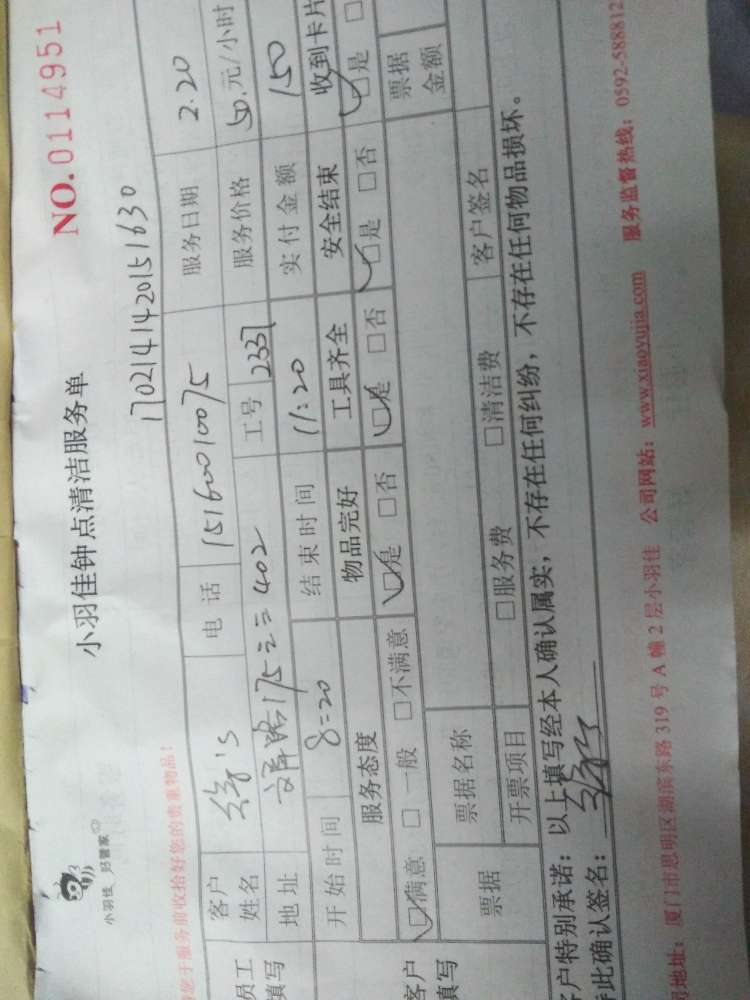 小羽佳钟点清洁服务单
NO.0114951
小羽佳 好管家
1702141420151630
您于服务前收拾好您的贵重物品!
员工填写
客户姓名
电话 15160010075
服务日期 2.20
地址 175 402
工号 2337
服务价格 50 元/小时
开始时间 8:20
结束时间 11:20
实付金额 150
客户填写
服务态度 物品完好 工具齐全 安全结束 收到卡片
☑满意 □一般 □不满意 ☑是 □否 ☑是 □否 ☑是 □否 ☑是 □
票据 票据名称 票据金额
开票项目 □服务费 □清洁费 客户签名
户特别承诺:以上填写经本人确认属实,不存在任何纠纷,不存在任何物品损坏。
此确认签名:
地址:厦门市思明区湖滨东路319号A幢2层小羽佳 公司网站:www.xiaoyujia.com 服务监督热线:0592-588812